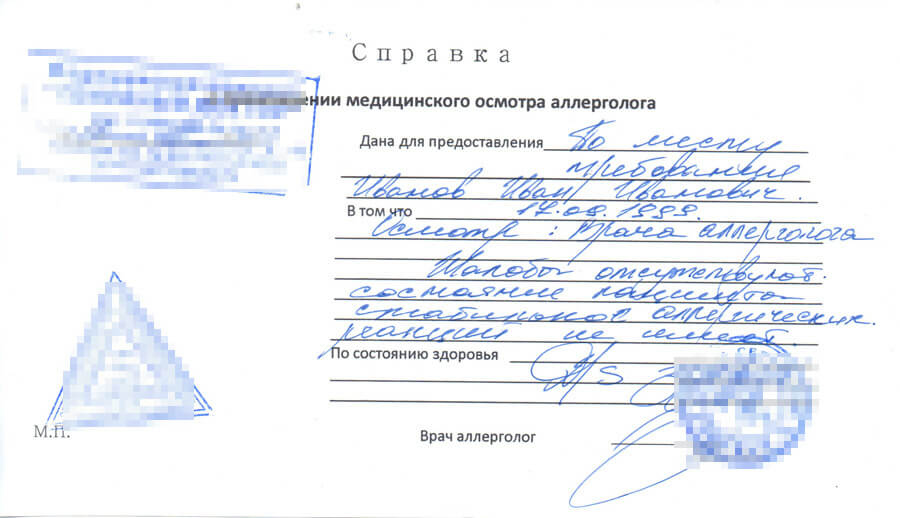 Справка
ении медицинского осмотра аллерголога
Дана для предоставления По месту
требования
Иванов Иван Иванович.
В том что 17.09.1999.
Осмотр : Врача аллерголога
Жалобы отсутствуют.
состояние пациента
стабильное аллергических
реакций не имеет.
По состоянию здоровья
М.П.
Врач аллерголог